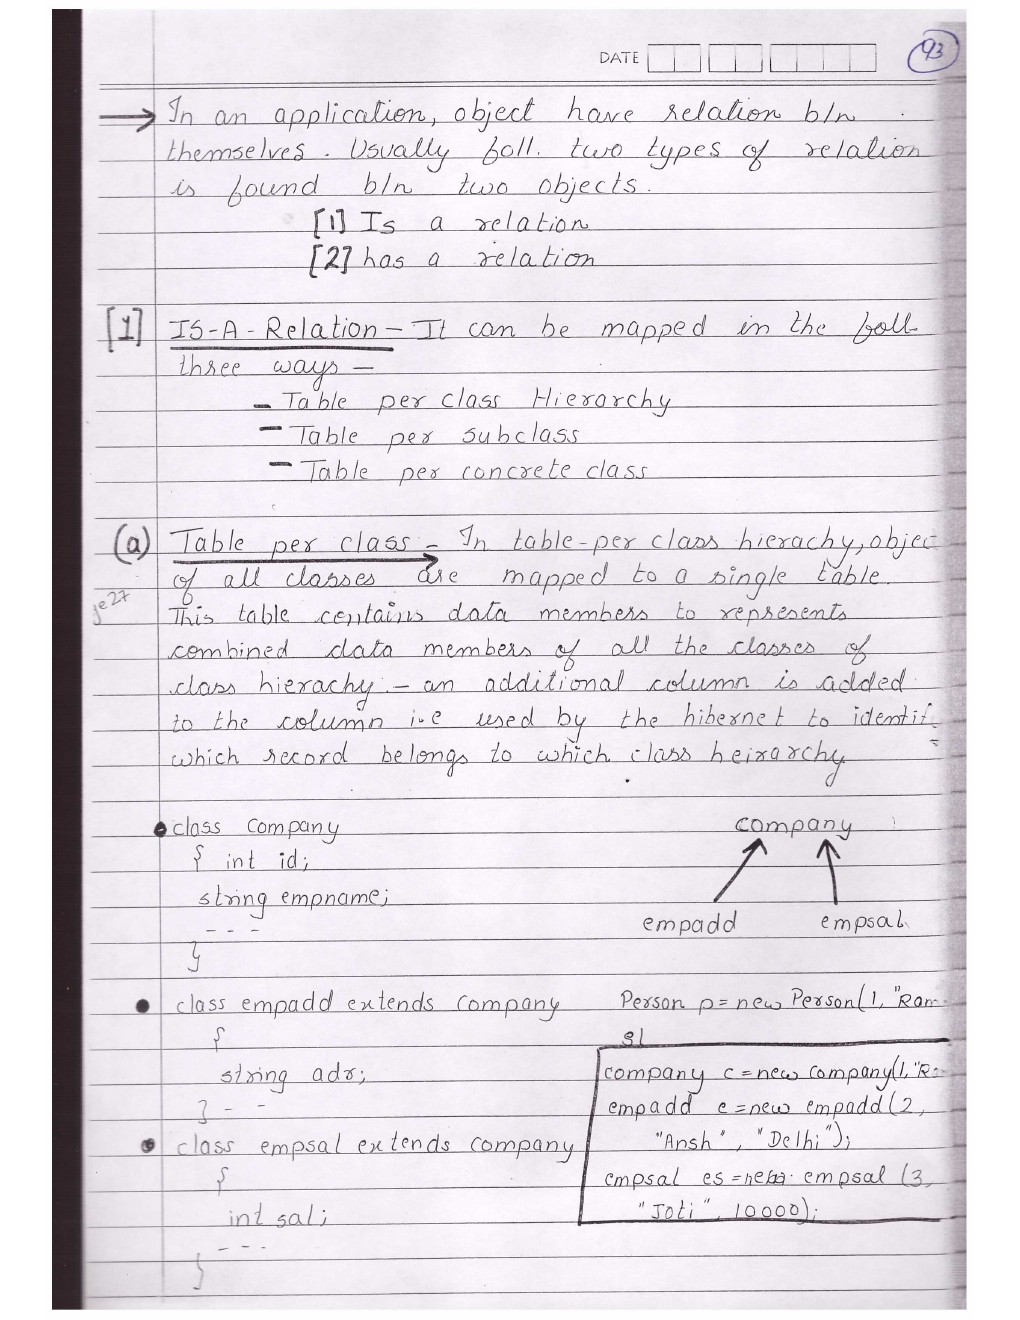 DATE
93
→ In an application, object have relation b/n
themselves. Usually foll. two types of relation
is found b/n two objects.
[1] Is a relation
[2] has a relation
[1] IS-A-Relation - It can be mapped in the foll
three ways -
- Table per class Hierarchy
- Table per subclass
- Table per concrete class
(a) Table per class - In table-per class hierachy, objec
of all classes are mapped to a single table.
This table contains data members to represents
combined data members of all the classes of
class hierachy - an additional column is added
to the column i.e used by the hibernet to identif
which record belongs to which class heirarchy
• class Company
{ int id;
string empname;
- - -
}
company
empadd empsal
• class empadd extends Company
{
string adr;
} - -
• class empsal extends company
{
int sal;
- - -
}
Person p = new Person(1, "Ram
company c = new company(1, "Ra
empadd e = new empadd (2,
"Ansh", "Delhi");
empsal es = new empsal (3,
"Joti", 10000);